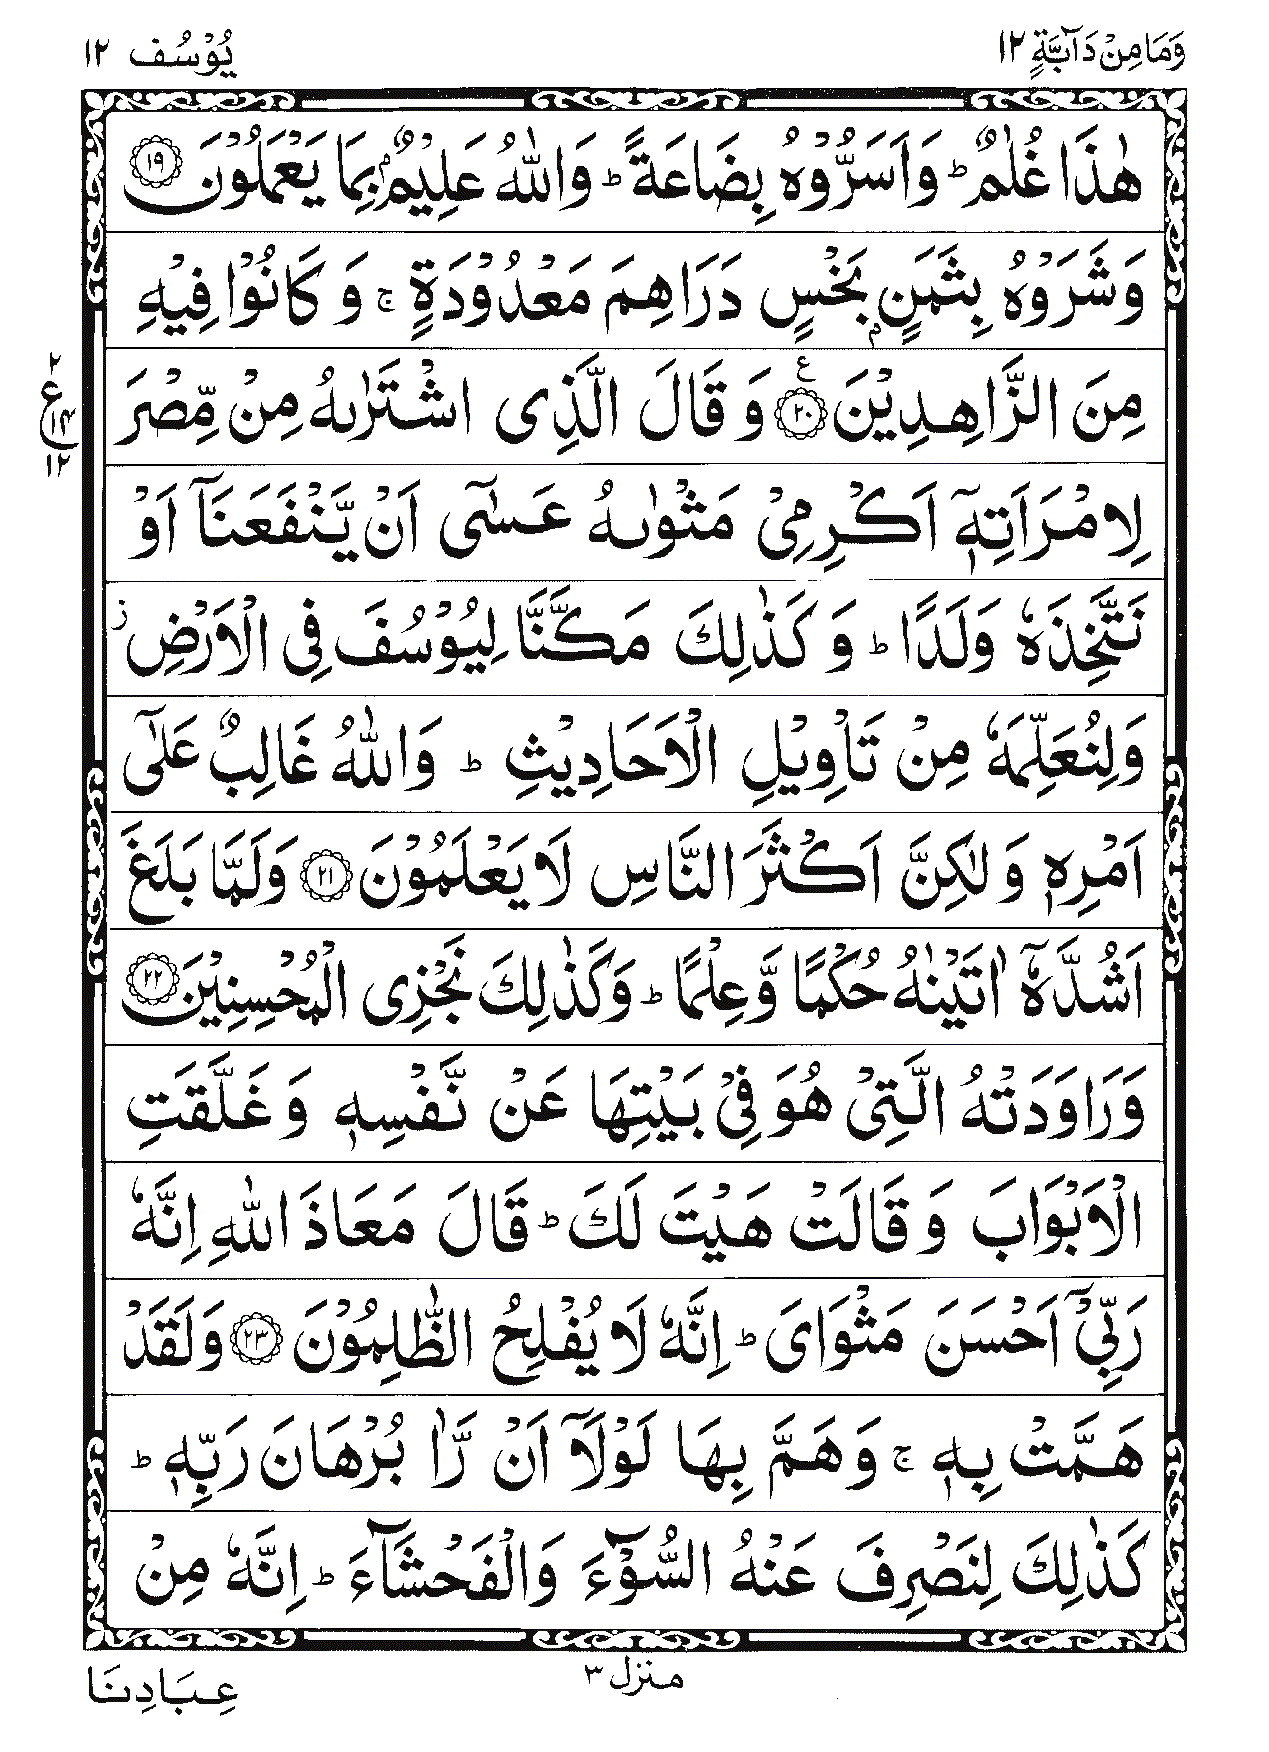 وَمَا مِنْ دَآبَّةٍ ١٢
يُوْسُف ١٢
هٰذَا غُلٰمٌ ؕ وَاَسَرُّوْهُ بِضَاعَةً ؕ وَاللّٰهُ عَلِيْمٌۢ بِمَا يَعْمَلُوْنَ ﴿۱۹﴾
وَشَرَوْهُ بِثَمَنٍۢ بَخْسٍ دَرَاهِمَ مَعْدُوْدَةٍ ۚ وَ كَانُوْا فِيْهِ
مِنَ الزَّاهِدِيْنَ ﴿۲۰﴾ ع وَ قَالَ الَّذِى اشْتَرٰىهُ مِنْ مِّصْرَ
٢
ع
١٤
١٢
لِامْرَاَتِهٖۤ اَكْرِمِىْ مَثْوٰىهُ عَسٰۤى اَنْ يَّنْفَعَنَاۤ اَوْ
نَتَّخِذَهٗ وَلَدًا ؕ وَ كَذٰلِكَ مَكَّنَّا لِيُوْسُفَ فِى الْاَرْضِ ز
وَلِنُعَلِّمَهٗ مِنْ تَاْوِيْلِ الْاَحَادِيْثِ ؕ وَاللّٰهُ غَالِبٌ عَلٰٓى
اَمْرِهٖ وَ لٰكِنَّ اَكْثَرَ النَّاسِ لَا يَعْلَمُوْنَ ﴿۲۱﴾ وَلَمَّا بَلَغَ
اَشُدَّهٗۤ اٰتَيْنٰهُ حُكْمًا وَّ عِلْمًا ؕ وَكَذٰلِكَ نَجْزِى الْمُحْسِنِيْنَ ﴿۲۲﴾
وَرَاوَدَتْهُ الَّتِىْ هُوَ فِىْ بَيْتِهَا عَنْ نَّفْسِهٖ وَ غَلَّقَتِ
الْاَبْوَابَ وَ قَالَتْ هَيْتَ لَكَ ؕ قَالَ مَعَاذَ اللّٰهِ اِنَّهٗ
رَبِّىْۤ اَحْسَنَ مَثْوَاىَ ؕ اِنَّهٗ لَا يُفْلِحُ الظّٰلِمُوْنَ ﴿۲۳﴾ وَلَقَدْ
هَمَّتْ بِهٖ ۚ وَهَمَّ بِهَا لَوْلَاۤ اَنْ رَّاٰ بُرْهَانَ رَبِّهٖ ؕ
كَذٰلِكَ لِنَصْرِفَ عَنْهُ السُّوْٓءَ وَالْفَحْشَآءَ ؕ اِنَّهٗ مِنْ
منزل ٣
عِبَادِنَا